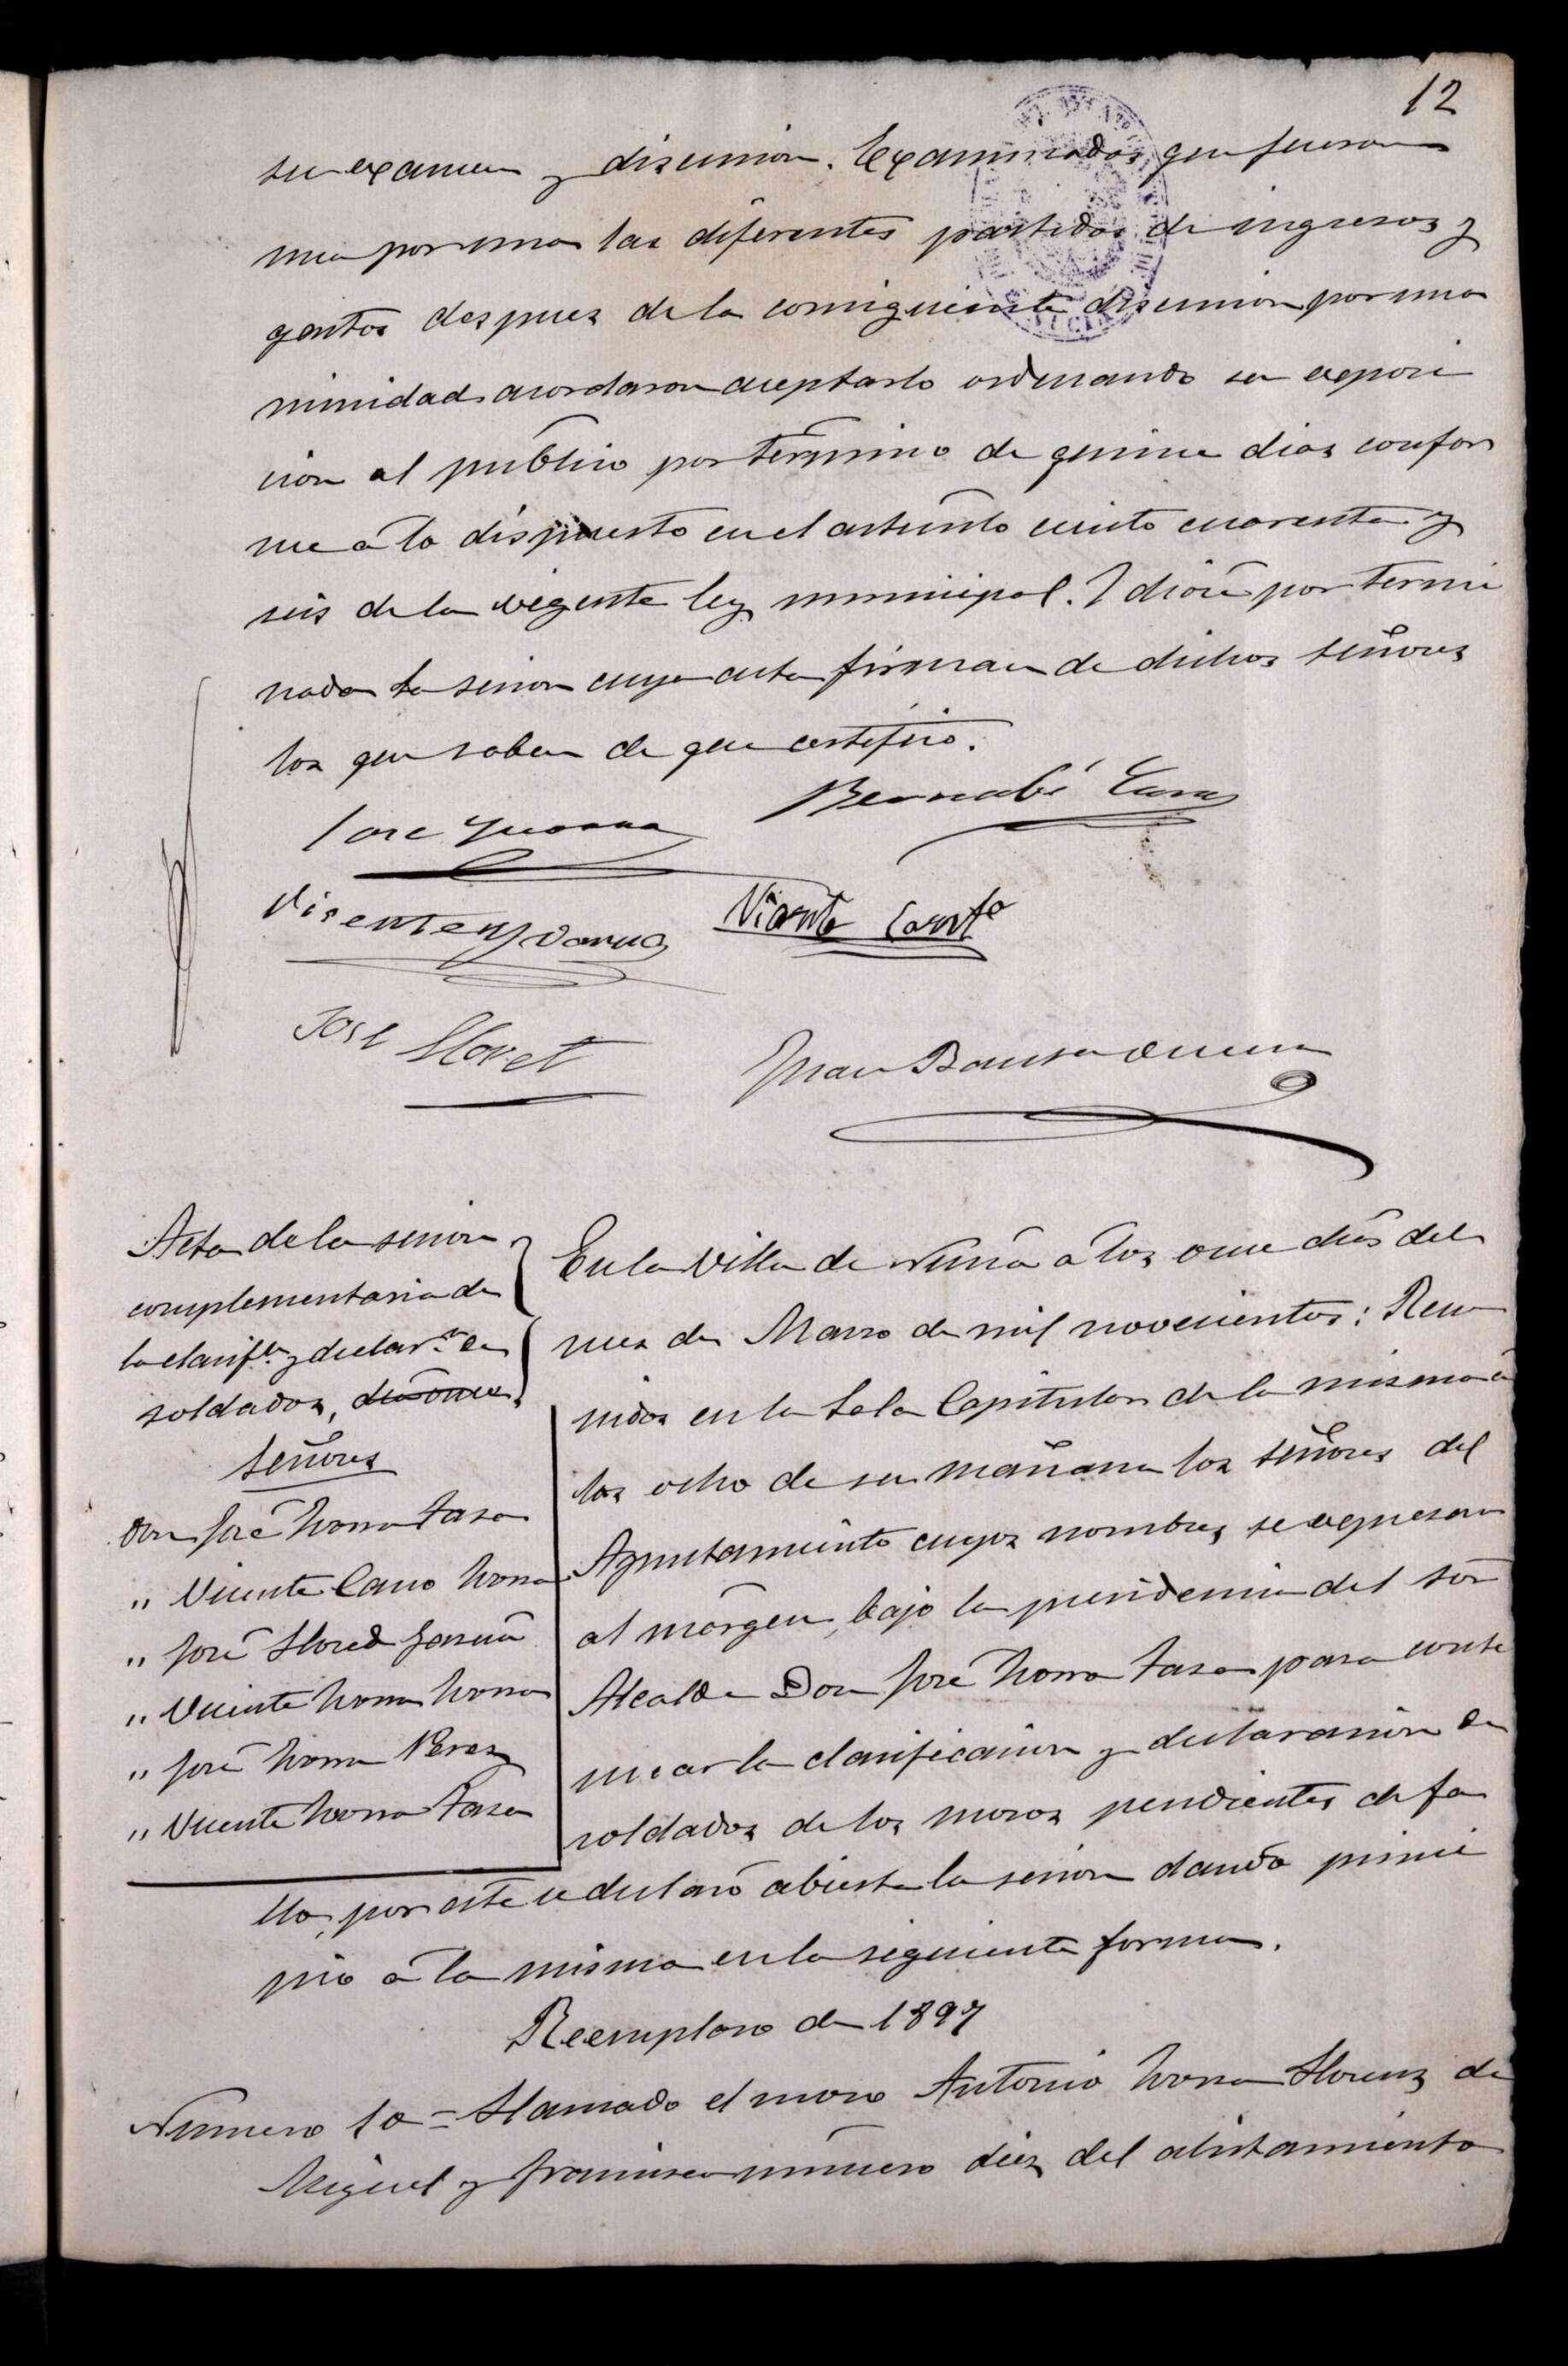 12
su examen y discusion. Examinados que fueron
una por una las diferentes partidas de ingresos y
gastos despues de la consiguiente discusion por una
nimidad acordaron aceptarlo ordenando su exposi
cion al público por término de quince dias confor
me á lo dispuesto en el artículo ciento cuarenta y
seis de la vigente ley municipal. I dióse por termi
nada la sesion cuya acta firman de dichos señores
los que saben de que certifico.
José Bernabé
Vicente Vicente
José Lloret Juan Bautista
Acta de la sesion
complementaria de
la clasifn y declarn de
soldados,
señores
Don José Ivorra
" Vicente Cano Ivorra
" José Lloret
" Vicente Ivorra Ivorra
" José Ivorra Perez
" Vicente Ivorra
En la Villa de á los once dias del
mes de Marzo de mil novecientos: Reu
nidos en la Sala Capitular de la misma á
las ocho de su mañana los señores del
Ayuntamiento cuyos nombres se expresan
al márgen, bajo la presidencia del Sor
Alcalde Don José Ivorra para conti
nuar la clasificacion y declaracion de
soldados de los mozos pendientes de fa
llo, por este se declaró abierta la sesion dando princi
pio á la misma en la siguiente forma.
Reemplazo de 1897
Número 10 = Llamado el mozo Antonio Ivorra Llorens de
Miguel y Francisca número diez del alistamiento